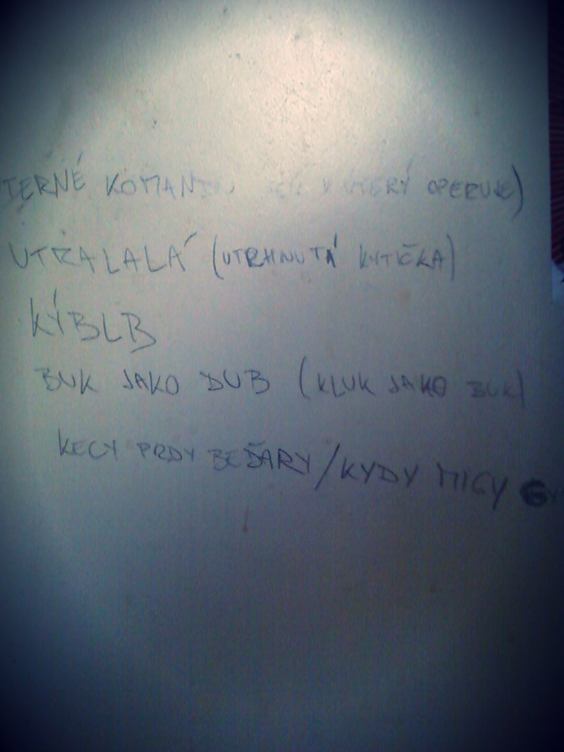 TERNÉ KOMAN KTERÝ OPERUJE)
UTRALALÁ (UTRHNUTÁ KYTIČKA)
KÝBLB
BUK JAKO DUB (KLUK JAKO BUK)
KECY PRDY BEĎARY/KYDY MICY